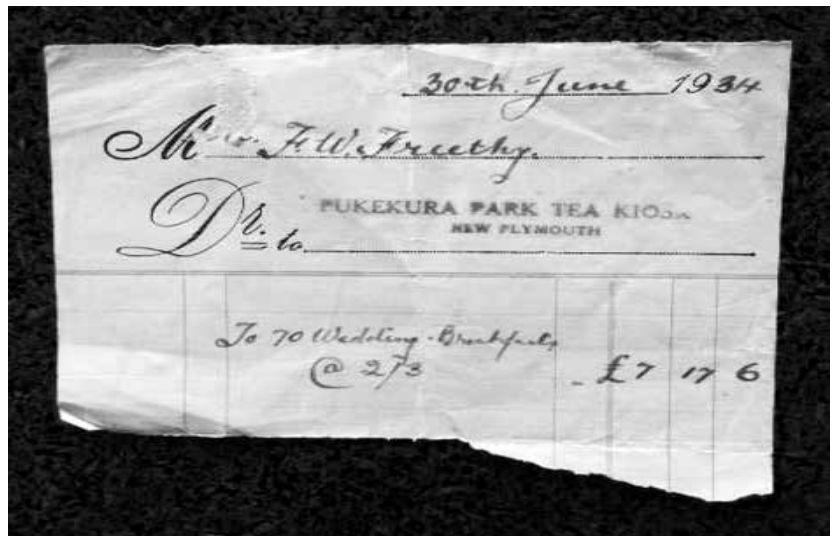 30th June 1934
Mrs. F. W. Freethy.
Dr. to PUKEKURA PARK TEA KIOSK
NEW PLYMOUTH
To 70 Wedding-Breakfasts
@ 2/3 - £7 17 6